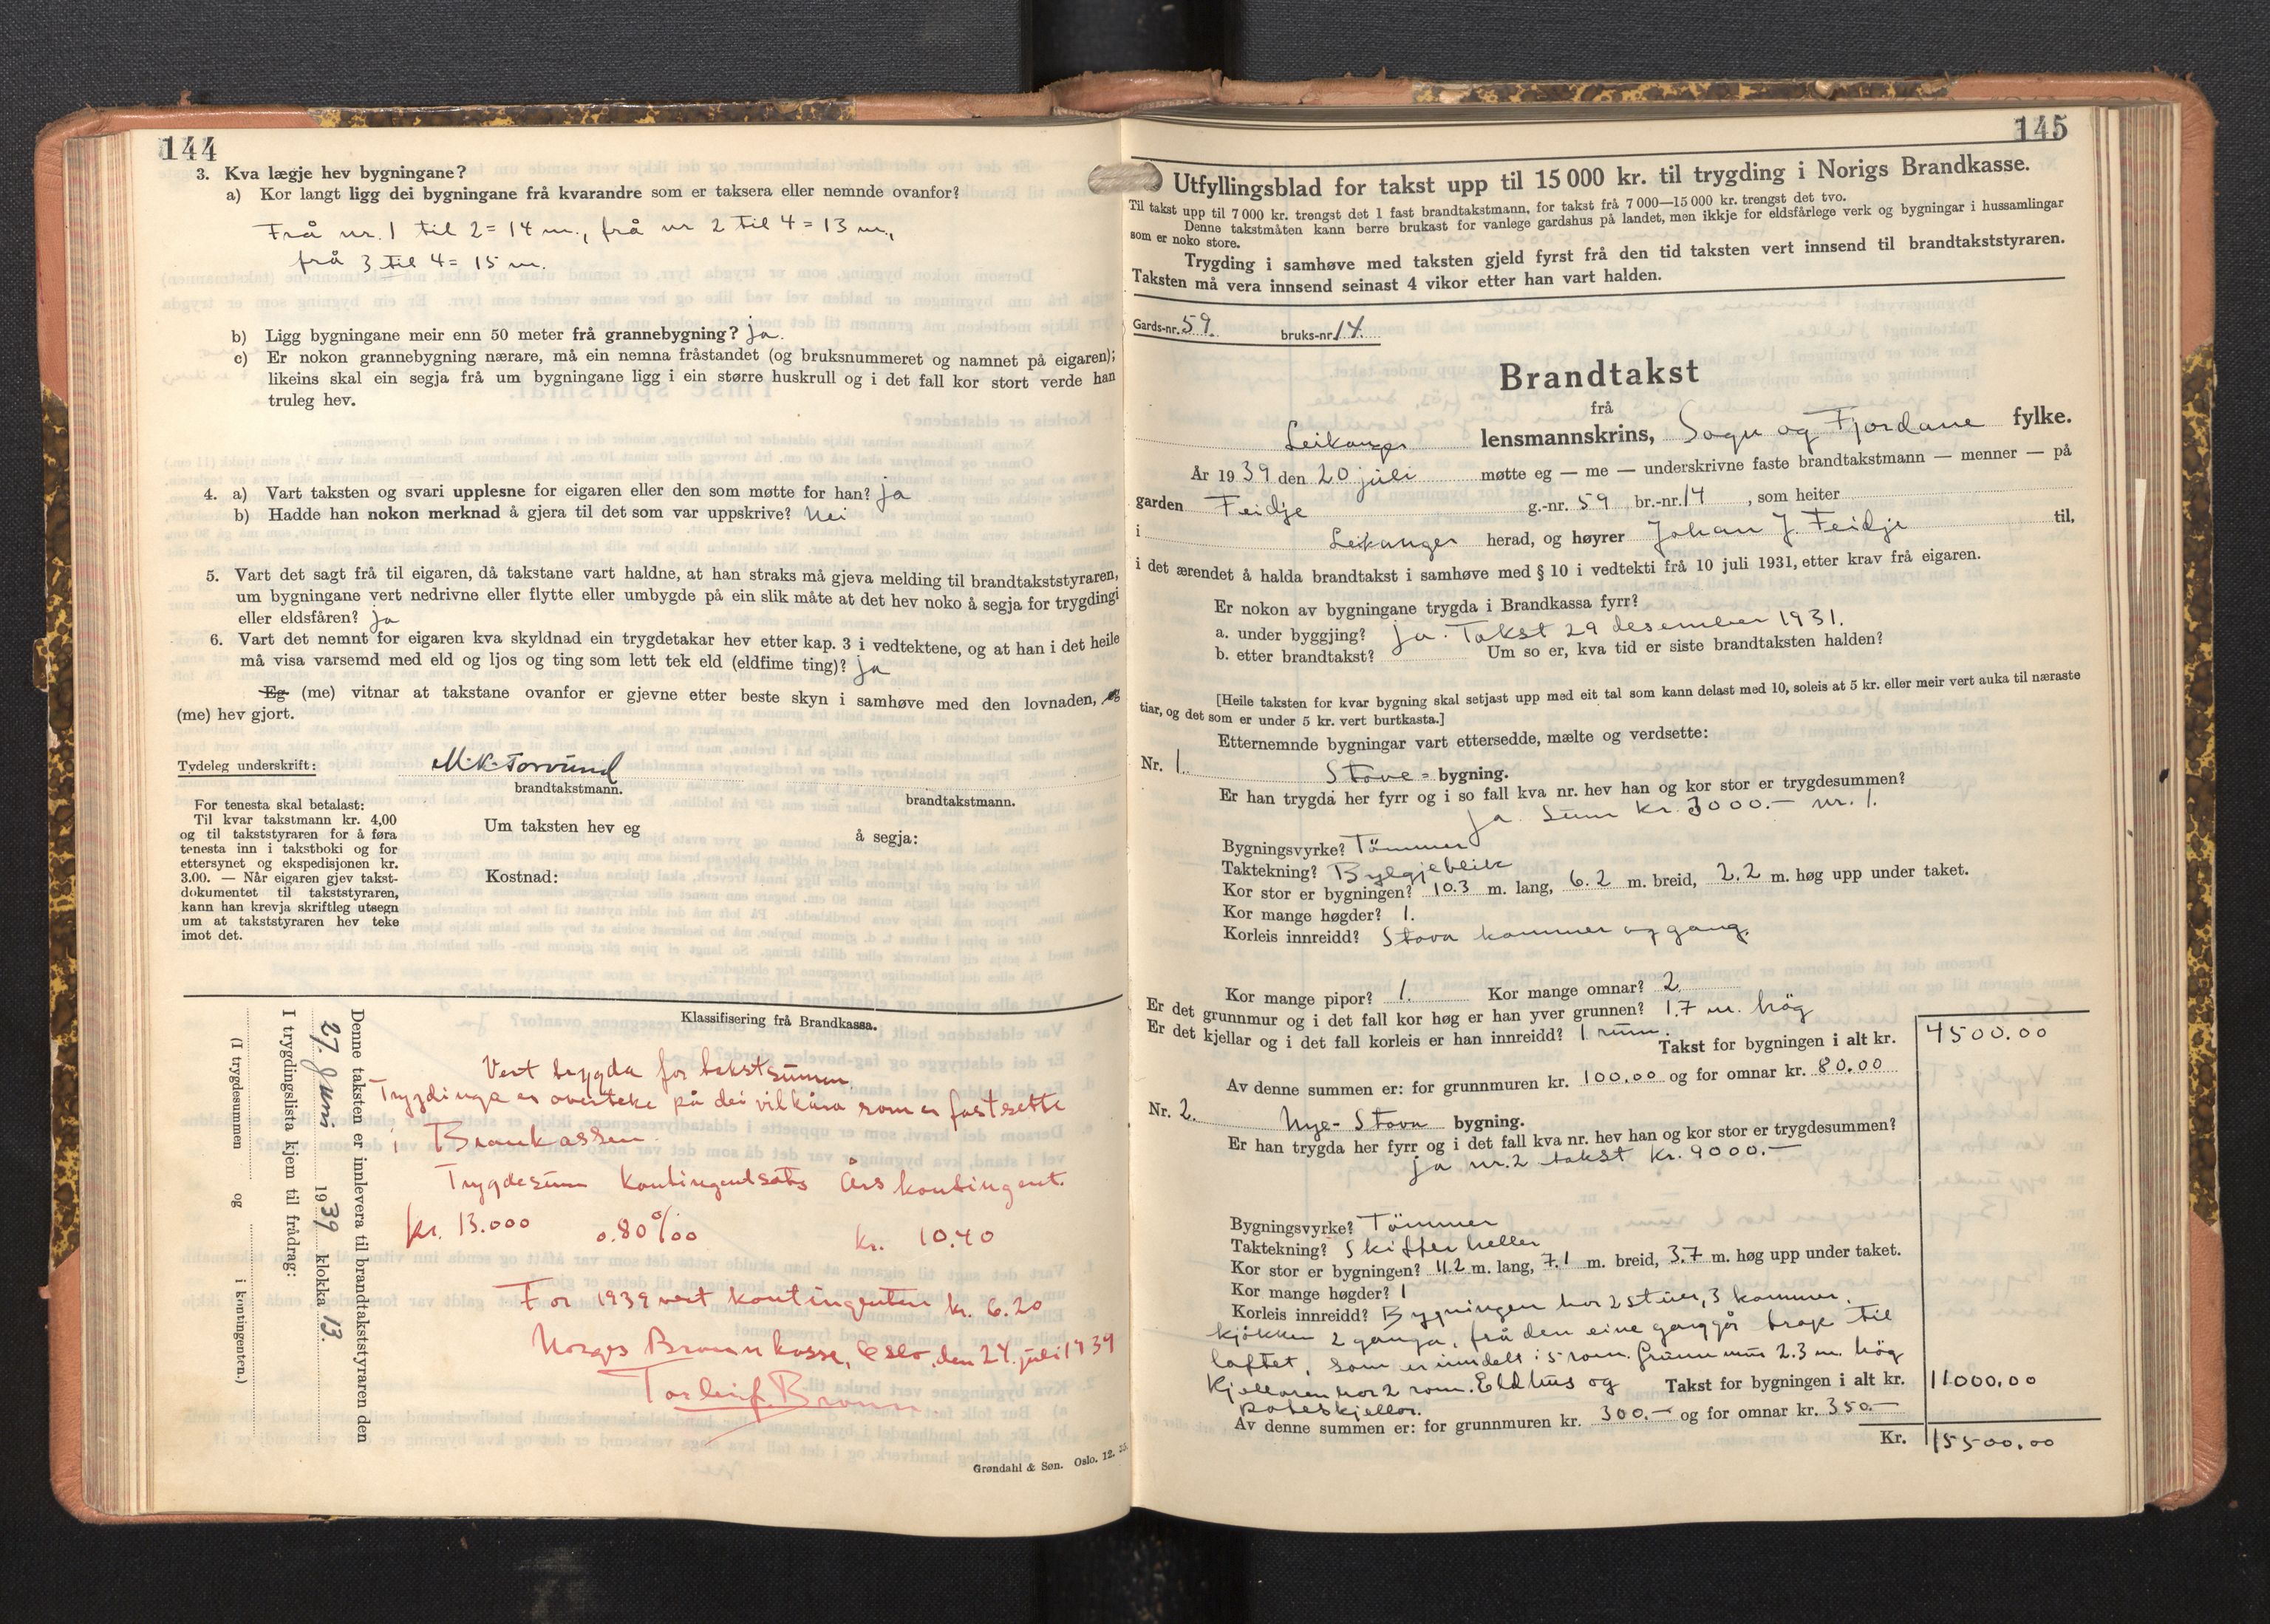 144
3. Kva lægje hev bygningane?
a) Kor langt ligg dei bygningane frå kvarandre som er taksera eller nemnde ovanfor?
Frå nr. 1 til 2 = 14 m., frå nr 2 til 4 = 13 m.,
frå 3 til 4 = 15 m.
b) Ligg bygningane meir enn 50 meter frå grannebygning? ja.
c) Er nokon grannebygning nærare, må ein nemna fråstandet (og bruksnummeret og namnet på eigaren);
likeins skal ein segja frå um bygningane ligg i ein større huskrull og i det fall kor stort verde han
truleg hev.
4. a) Vart taksten og svari upplesne for eigaren eller den som møtte for han? ja
b) Hadde han nokon merknad å gjera til det som var uppskrive? Nei
5. Vart det sagt frå til eigaren, då takstane vart haldne, at han straks må gjeva melding til brandtakststyraren,
um bygningane vert nedrivne eller flytte eller umbygde på ein slik måte at det hev noko å segja for trygdingi
eller eldsfåren? ja
6. Vart det nemnt for eigaren kva skyldnad ein trygdetakar hev etter kap. 3 i vedtektene, og at han i det heile
må visa varsemd med eld og ljos og ting som lett tek eld (eldfime ting)? ja
Eg (me) vitnar at takstane ovanfor er gjevne etter beste skyn i samhøve med den lovnaden, eg
(me) hev gjort.
Tydeleg underskrift: M. K. Torvund
brandtakstmann. brandtakstmann.
For tenesta skal betalast:
Til kvar takstmann kr. 4,00
og til takststyraren for å føra
tenesta inn i takstboki og for
ettersynet og ekspedisjonen kr.
3.00. — Når eigaren gjev takst-
dokumentet til takststyraren,
kann han krevja skriftleg utsegn
um at takststyraren hev teke
imot det.
Um taksten hev eg å segja:
Kostnad:
Klassifisering frå Brandkassa.
Vert trygda for takstsummen.
Trygdinga er overteke på dei vilkåra som er fastsette
i Brankassen.
Trygdesum Kontingentsats Årskontingent.
kr. 13.000 0.80 ‰ kr. 10.40
For 1939 vert kontingenten kr. 6.20
Norges Brannkasse, Oslo, den 24. juli 1939
Torleif. Brunn.
Denne taksten er innlevera til brandtakststyraren den
27. Juni 1939 klokka 13.
I trygdingslista kjem til frådrag:
(I trygdesummen og i kontingenten.)
Grøndahl & Søn. Oslo. 12. 35.
145
Utfyllingsblad for takst upp til 15 000 kr. til trygding i Norigs Brandkasse.
Til takst upp til 7 000 kr. trengst det 1 fast brandtakstmann, for takst frå 7 000—15 000 kr. trengst det tvo.
Denne takstmåten kann berre brukast for vanlege gardshus på landet, men ikkje for eldsfårlege verk og bygningar i hussamlingar
som er noko store.
Trygding i samhøve med taksten gjeld fyrst frå den tid taksten vert innsend til brandtakststyraren.
Taksten må vera innsend seinast 4 vikor etter han vart halden.
Gards-nr. 59. bruks-nr. 14.
Brandtakst
frå
Leikanger lensmannskrins, Sogn og Fjordane fylke.
År 1939 den 20 juli møtte eg — me — underskrivne faste brandtakstmann — menner — på
garden Feidje g.-nr. 59 br.-nr. 14, som heiter
i Leikanger herad, og høyrer Johan J. Feidje til,
i det ærendet å halda brandtakst i samhøve med § 10 i vedtekti frå 10 juli 1931, etter krav frå eigaren.
Er nokon av bygningane trygda i Brandkassa fyrr?
a. under byggjing? ja. Takst 29 desember 1931.
b. etter brandtakst? Um so er, kva tid er siste brandtaksten halden?
[Heile taksten for kvar bygning skal setjast upp med eit tal som kann delast med 10, soleis at 5 kr. eller meir vert auka til næraste
tiar, og det som er under 5 kr. vert burtkasta.]
Etternemnde bygningar vart ettersedde, mælte og verdsette:
Nr. 1. Stove = bygning.
Er han trygda her fyrr og i so fall kva nr. hev han og kor stor er trygdesummen?
ja. Sum kr. 3000.— nr. 1.
Bygningsvyrke? Tömmer
Taktekning? Bylgjeblik
Kor stor er bygningen? 10.3 m. lang, 6.2 m. breid, 2.2 m. høg upp under taket.
Kor mange høgder? 1.
Korleis innreidd? Stova kammer og gang.
Kor mange pipor? 1. Kor mange omnar? 2.
Er det grunnmur og i det fall kor høg er han yver grunnen? 1.7 m. hög
Er det kjellar og i det fall korleis er han innreidd? 1 rum.
Takst for bygningen i alt kr. 4500.00
Av denne summen er: for grunnmuren kr. 100.00 og for omnar kr. 80.00
Nr. 2. Nye- Stova bygning.
Er han trygda her fyrr og i det fall kva nr. hev han og kor stor er trygdesummen?
ja nr. 2 takst kr. 9000.—
Bygningsvyrke? Tömmer
Taktekning? Skifterheller
Kor stor er bygningen? 11.2 m. lang, 7.1 m. breid, 3.7 m. høg upp under taket.
Kor mange høgder? 1
Korleis innreidd? Bygningen har 2 stuer, 3 kammer.
kjökken 2 ganga, frå den eine gang går trap til
loftet, som er inndelt i 5 rom. Grunnmur 2.3 m. hög
Kjellaren har 2 rom. Eldhus og Takst for bygningen i alt kr. 11000.00
poteskjellar.
Av denne summen er: for grunnmuren kr. 300.— og for omnar kr. 350.—
Kr. 15500.00